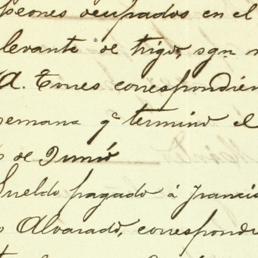 peones ocupados en el
levante de trigo, sgn
A. Torres correspondien
semana q terminó el
de Junio
Sueldo pagado á Francis
Alvarado, correspondi